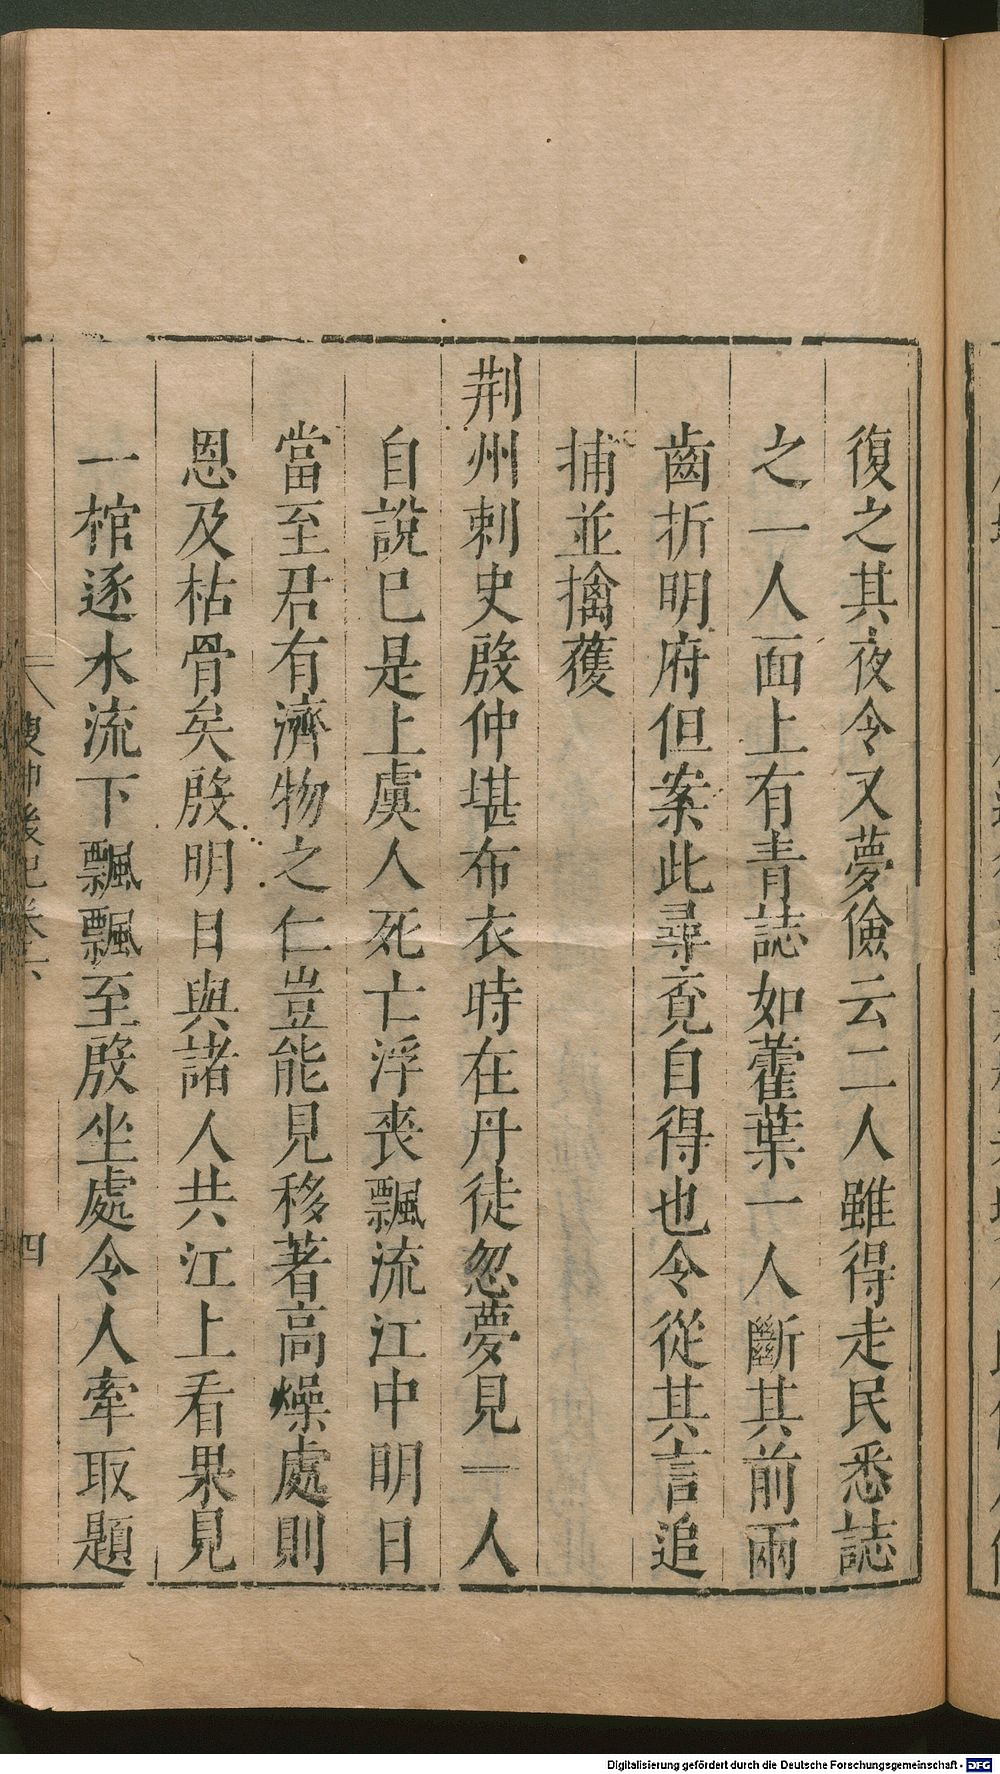 復之其夜令又夢儉云二人雖得走民悉誌
之一人面上有青誌如藿葉一人斷其前兩
齒折明府但案此尋覓自得也令從其言追
捕並擒獲
荆州刺史殷仲堪布衣時在丹徒忽夢見一人
自說已是上虞人死亡浮喪飄流江中明日
當至君有濟物之仁豈能見移著高燥處則
恩及枯骨矣殷明日與諸人共江上看果見
一棺逐水流下飄飄至殷坐處令人牽取題
後記卷六
四
Digitalisierung gefördert durch die Deutsche Forschungsgemeinschaft - DFG